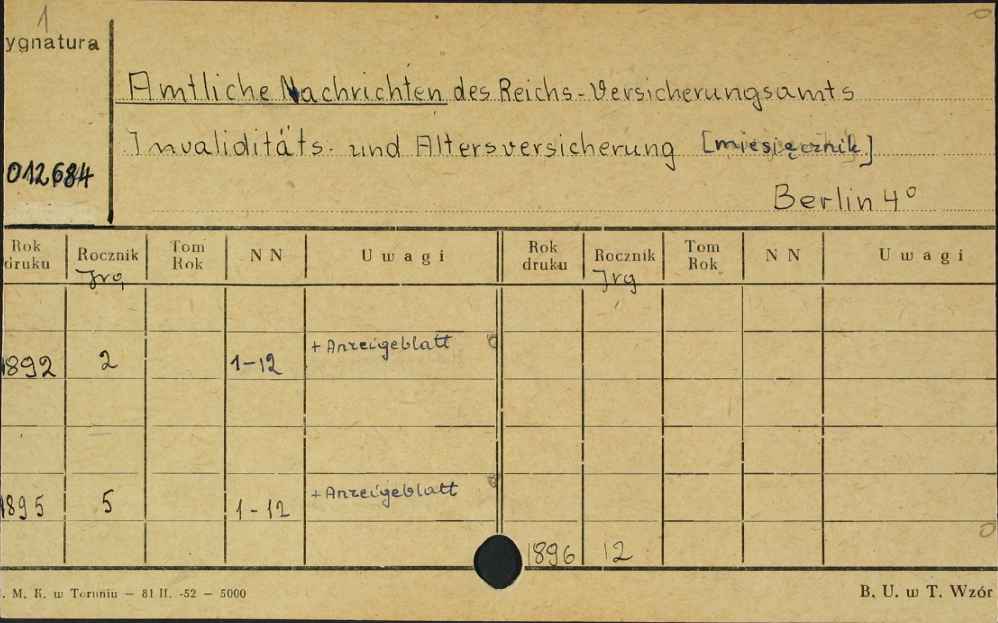 1
ygnatura
Amtliche Nachrichten des Reichs-Versicherungsamts
Invaliditäts- und Altersversicherung [miesięcznik]
012684
Berlin 4°
Rok druku Rocznik Tom Rok N N Uwagi Rok druku Rocznik Tom Rok N N Uwagi
Jrg Jrg
1892 2 1-12 + Anzeigeblatt
1895 5 1-12 + Anzeigeblatt
1896 12
. M. K. w Toruniu — 81 II. -52 — 5000 B. U. w T. Wzór